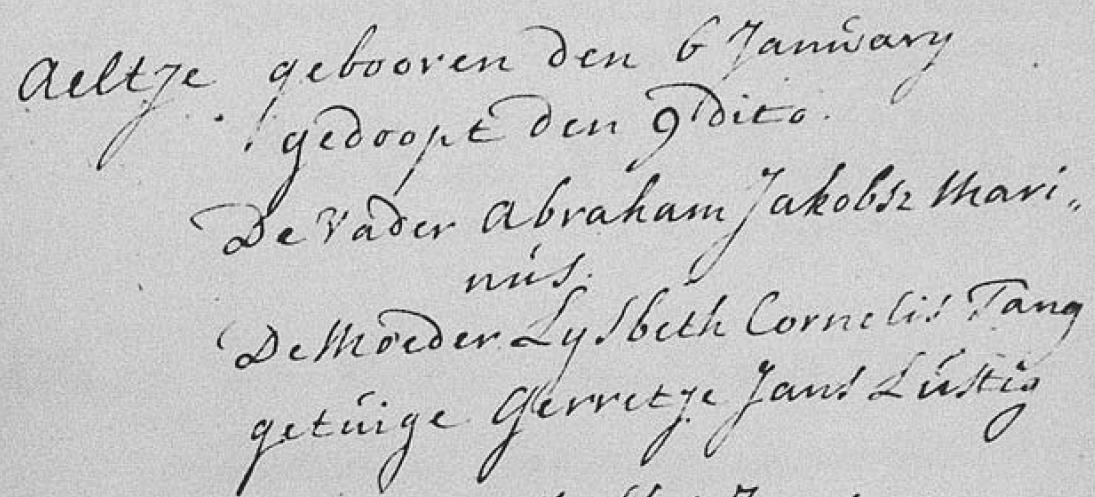 Aeltje gebooren den 6 Januwary
gedoopt den 9 dito.
De Vader Abraham Jakobsz Mari„
nus.
De Moeder Lysbeth Cornelis Tang
getuige Gerretje Jans Lustig